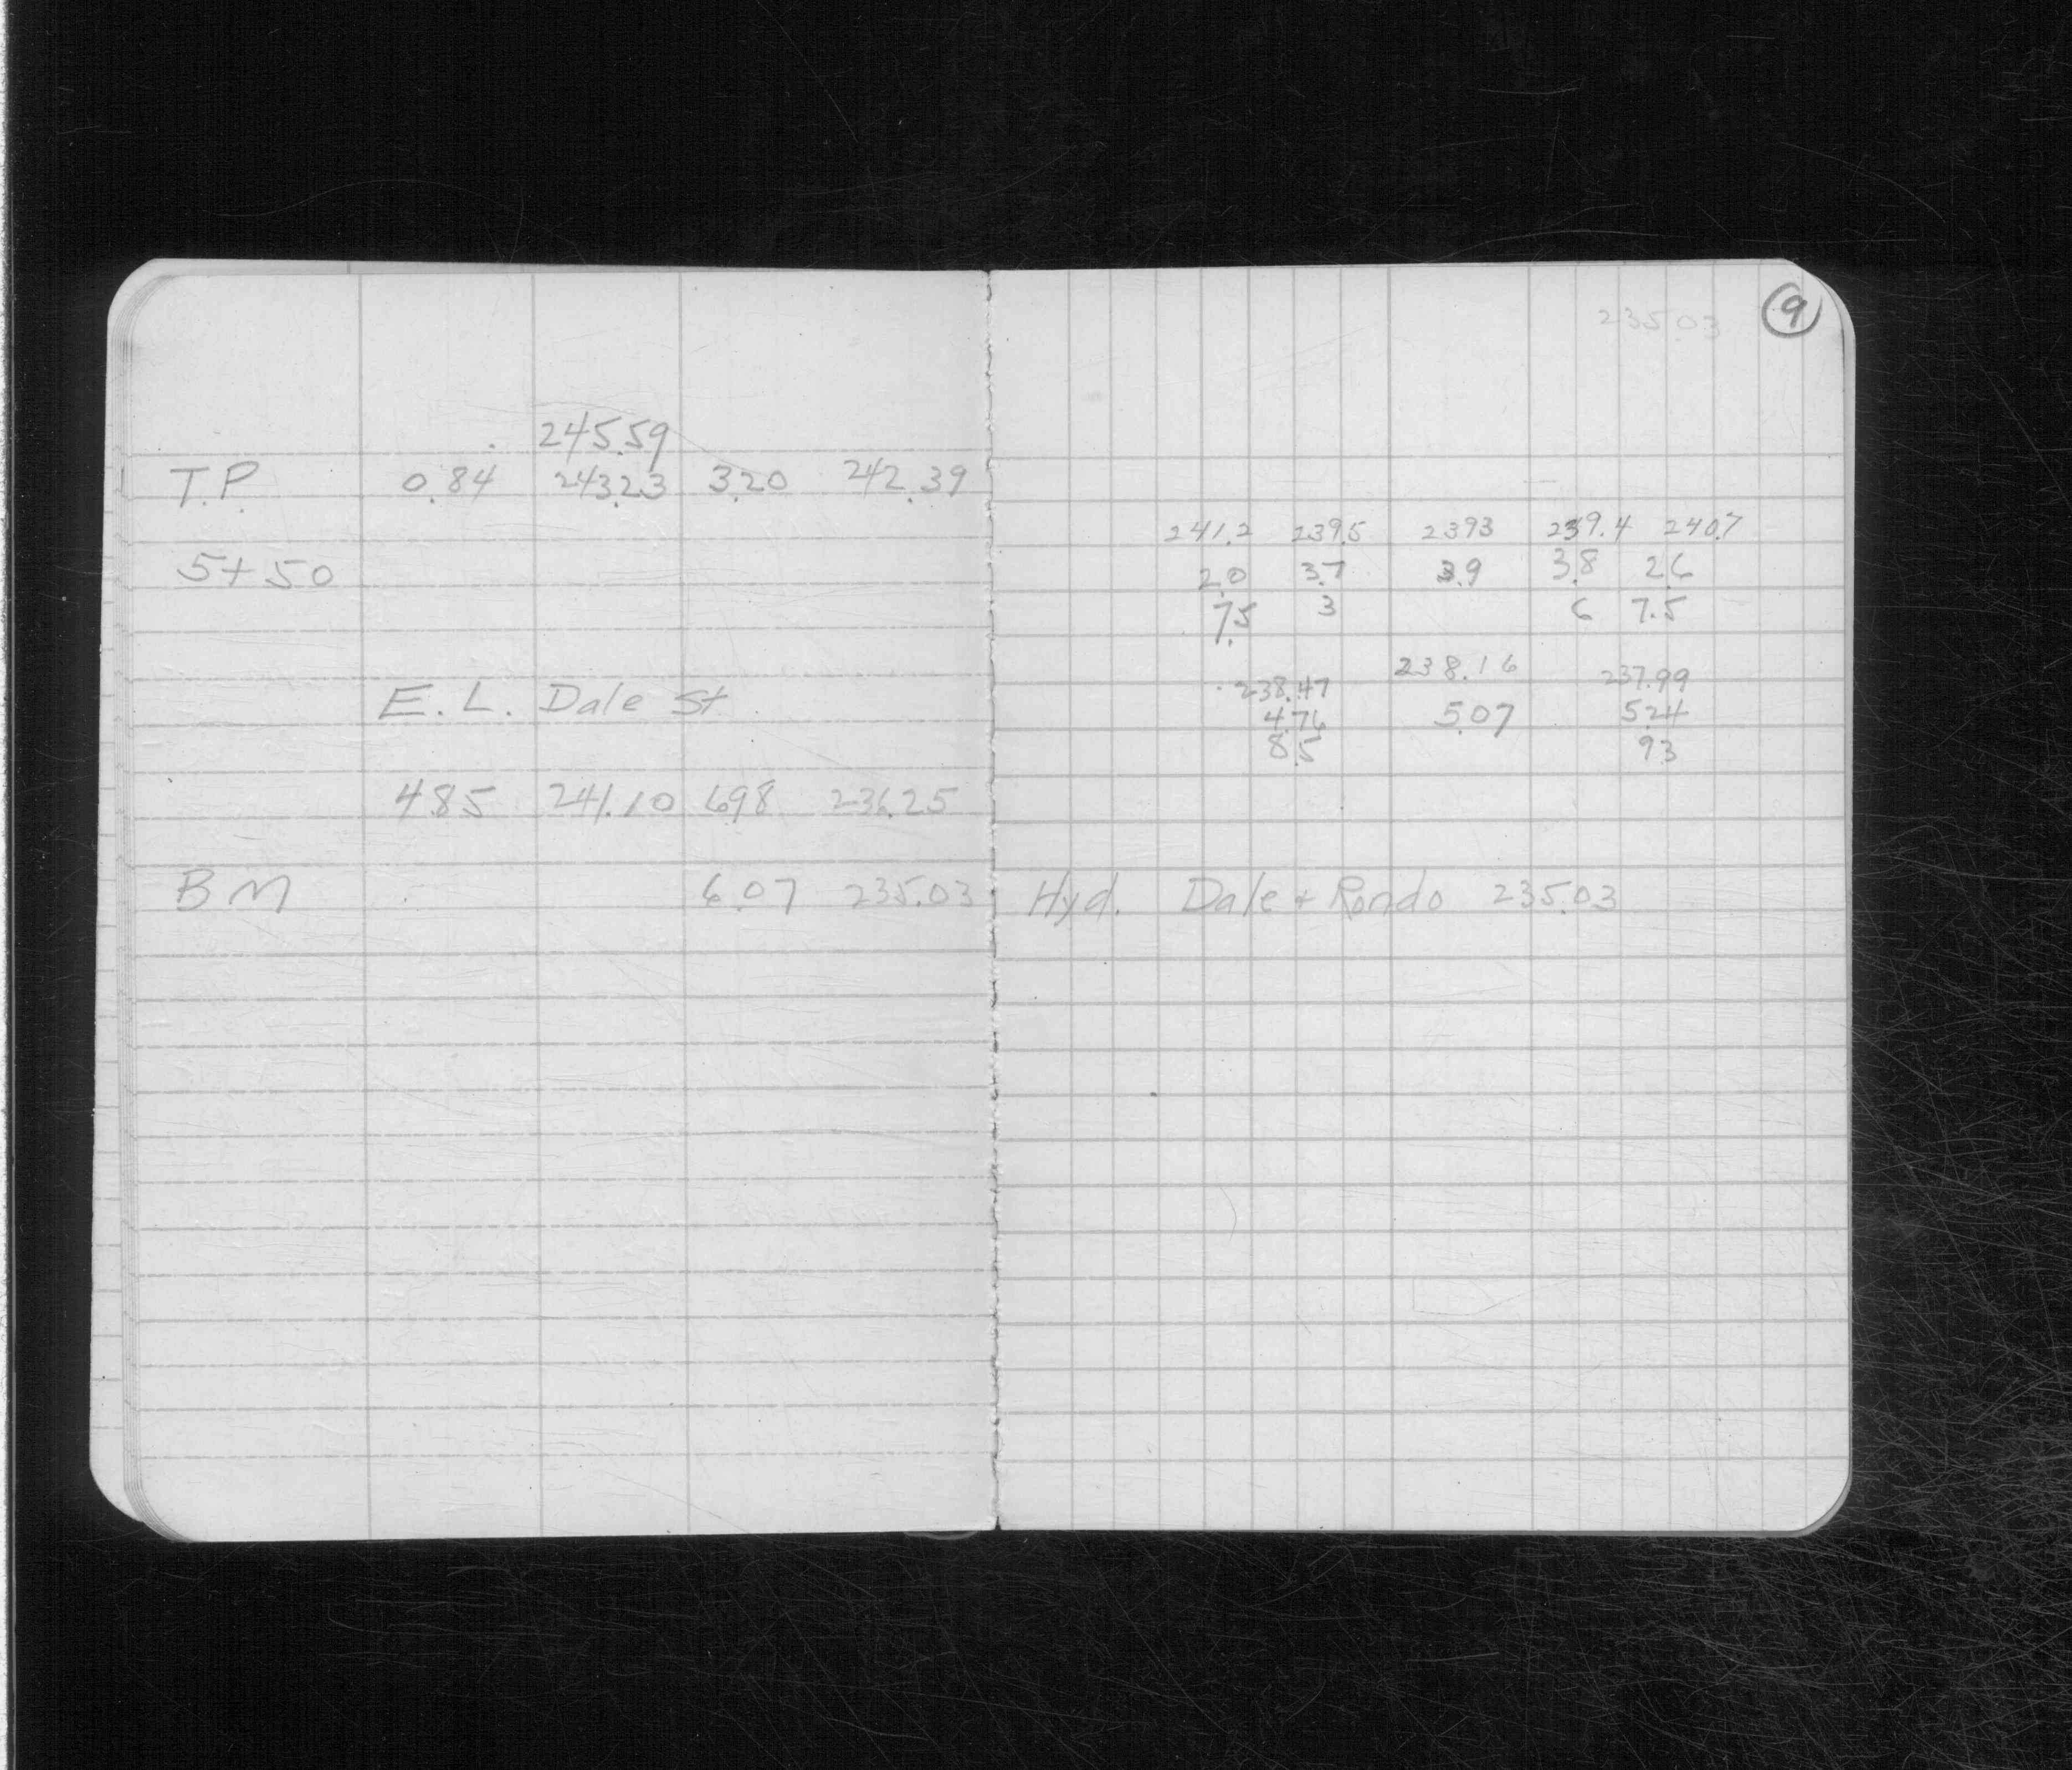 245.59
T.P. 0.84 243.23 3.20 242.39
5+50
E.L. Dale St.
4.85 241.10 6.98 236.25
BM 6.07 235.03
9
235.03
241.2 239.5 239.3 239.4 240.7
2.0 3.7 3.9 3.8 2.6
7.5 3 6 7.5
238.16
238.47 237.99
4.76 5.07 5.24
8.5 93
Hyd. Dale + Rondo 235.03